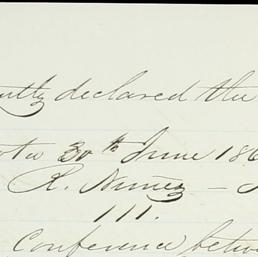 declared the
30th June 186
R. Nunez —
111.
Conference betw